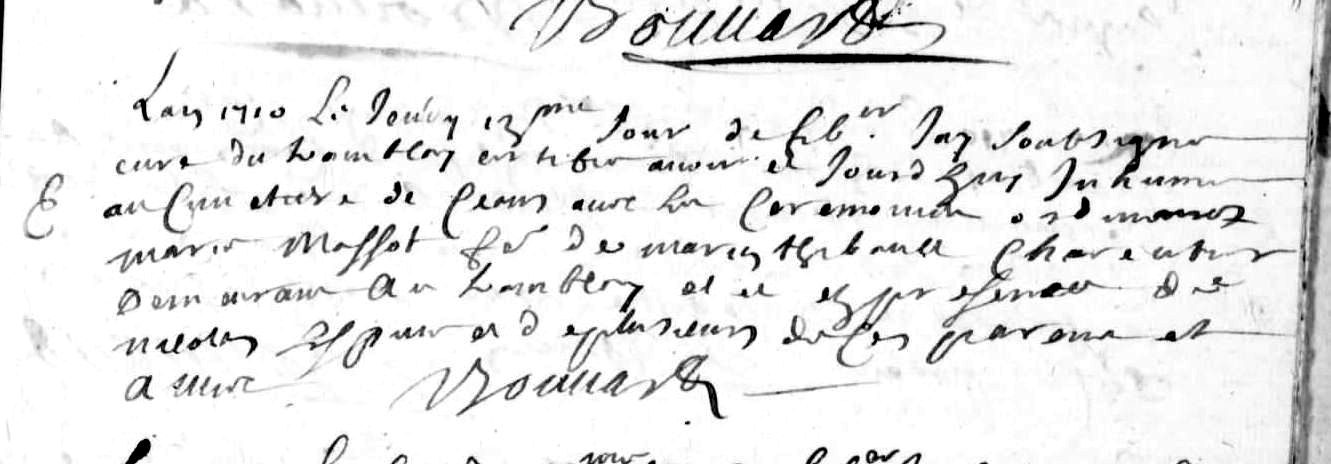 Bouuard
Lan 1710 Le Jeudy 13me Jour de feb.er Jay soubsigne
cure du tremblay certifie auoir et Jourdhuy Inhume
au Cimetiere de Ceans auec les Ceremonies ordinaires
marie Massot fe de marin thibault Charentier
Demeurant Au tremblay et ce en presence de
nicolas et deplusieurs de ses parens et
amis Bouuard